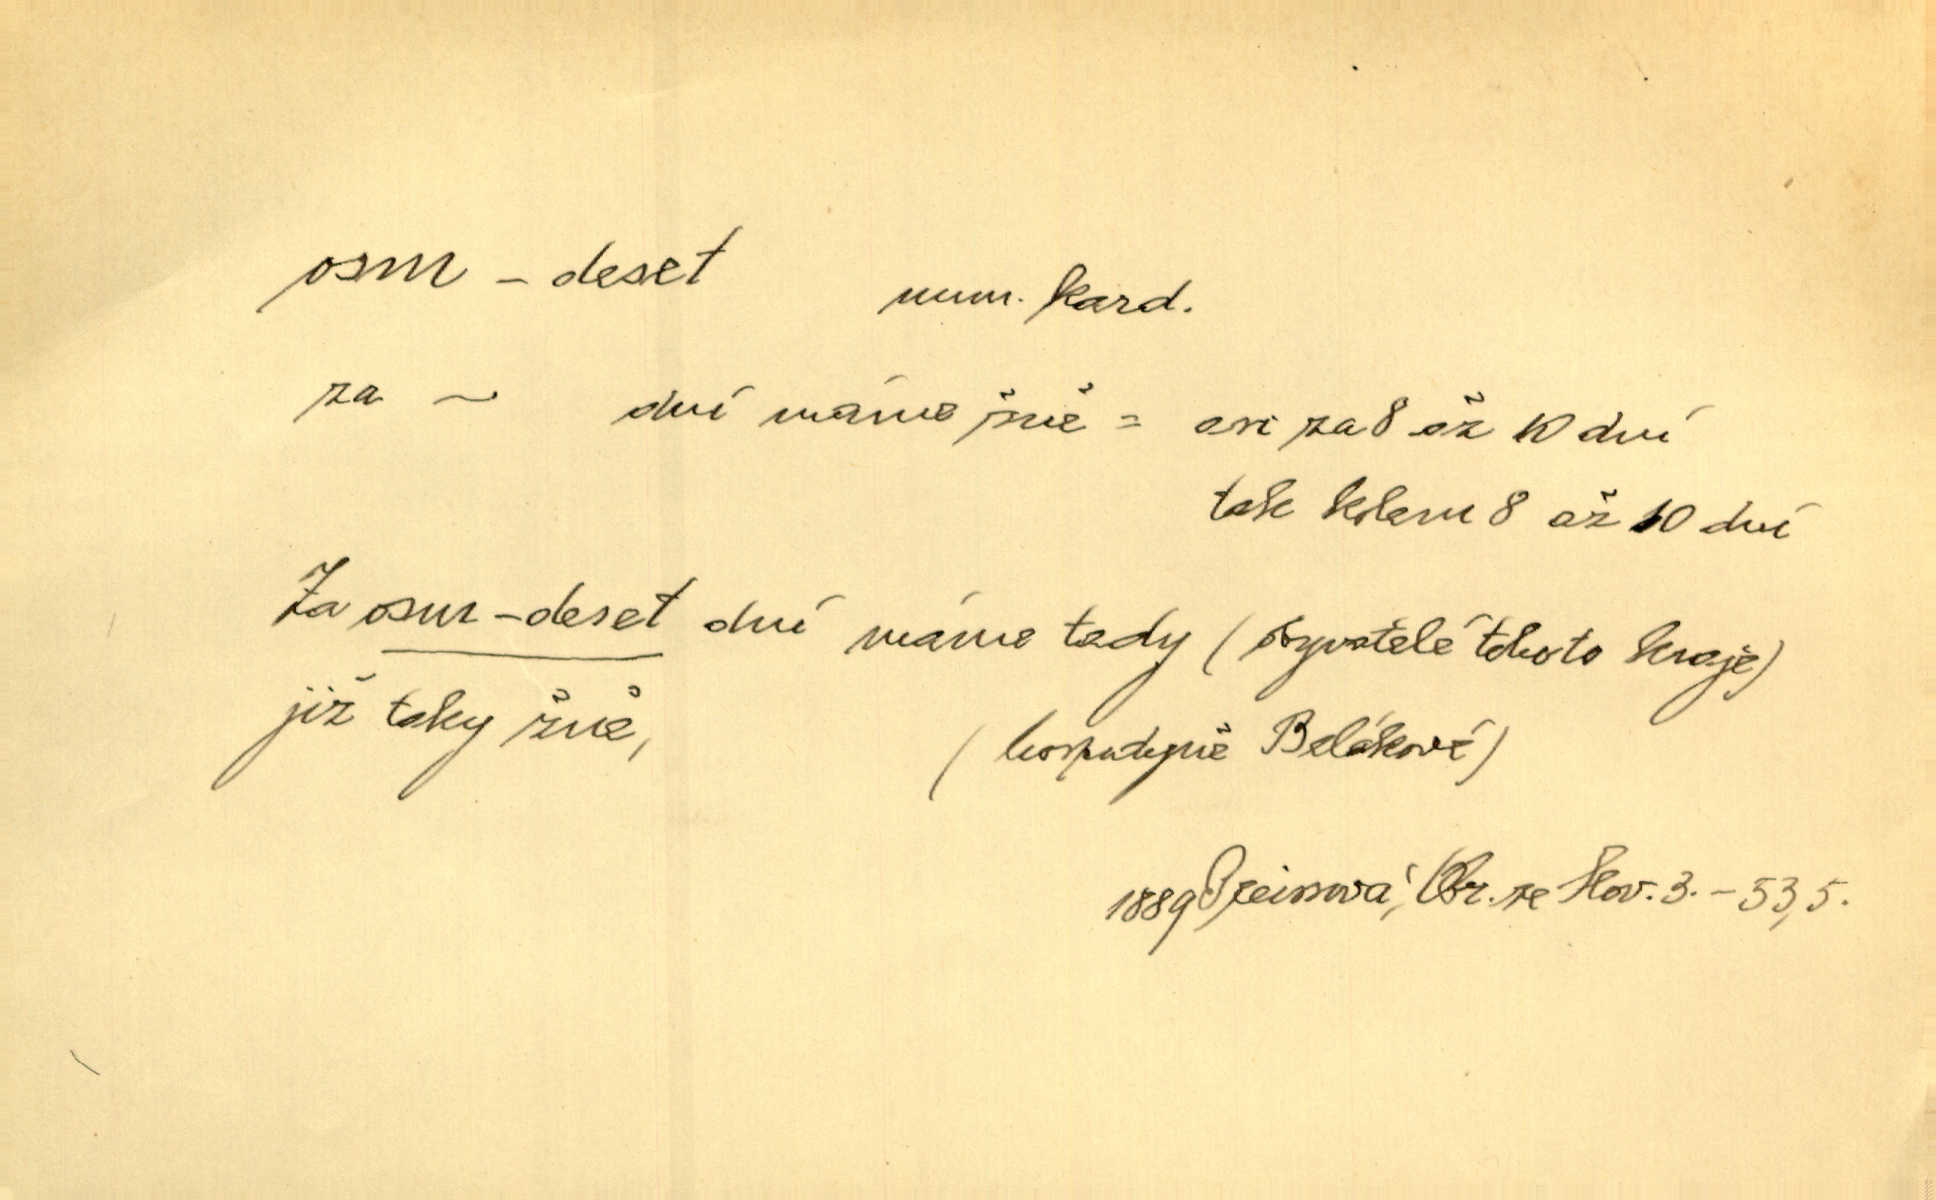 osm – deset num. kard.
za ~ dní máme žně = asi za 8 až 10 dní
tak kolem 8 až 10 dní
Za osm – deset dní máme tady (obyvatelé tohoto kraje)
již taky žně, (hospodyně Beláková)
1889 Preissová, Obr. ze Slov. 3. – 53,5.